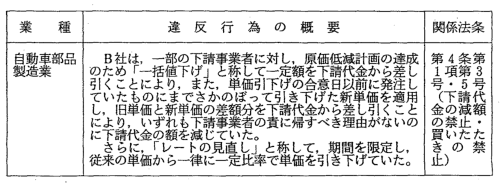 業種
違反行為の概要
関係法条
自動車部品
製造業
B社は，一部の下請事業者に対し，原価低減計画の達成
のため「一括値下げ」と称して一定額を下請代金から差し
引くことにより，また，単価引下げの合意日以前に発注し
ていたものにまでさかのぼって引き下げた新単価を適用
し，旧単価と新単価の差額分を下請代金から差し引くこと
により，いずれも下請事業者の責に帰すべき理由がないの
に下請代金の額を減じていた。
さらに，「レートの見直し」と称して，期間を限定し，
従来の単価から一律に一定比率で単価を引き下げていた。
第4条第
1項第3
号・5号
（下請代
金の減額
の禁止・
買いたた
きの禁
止）